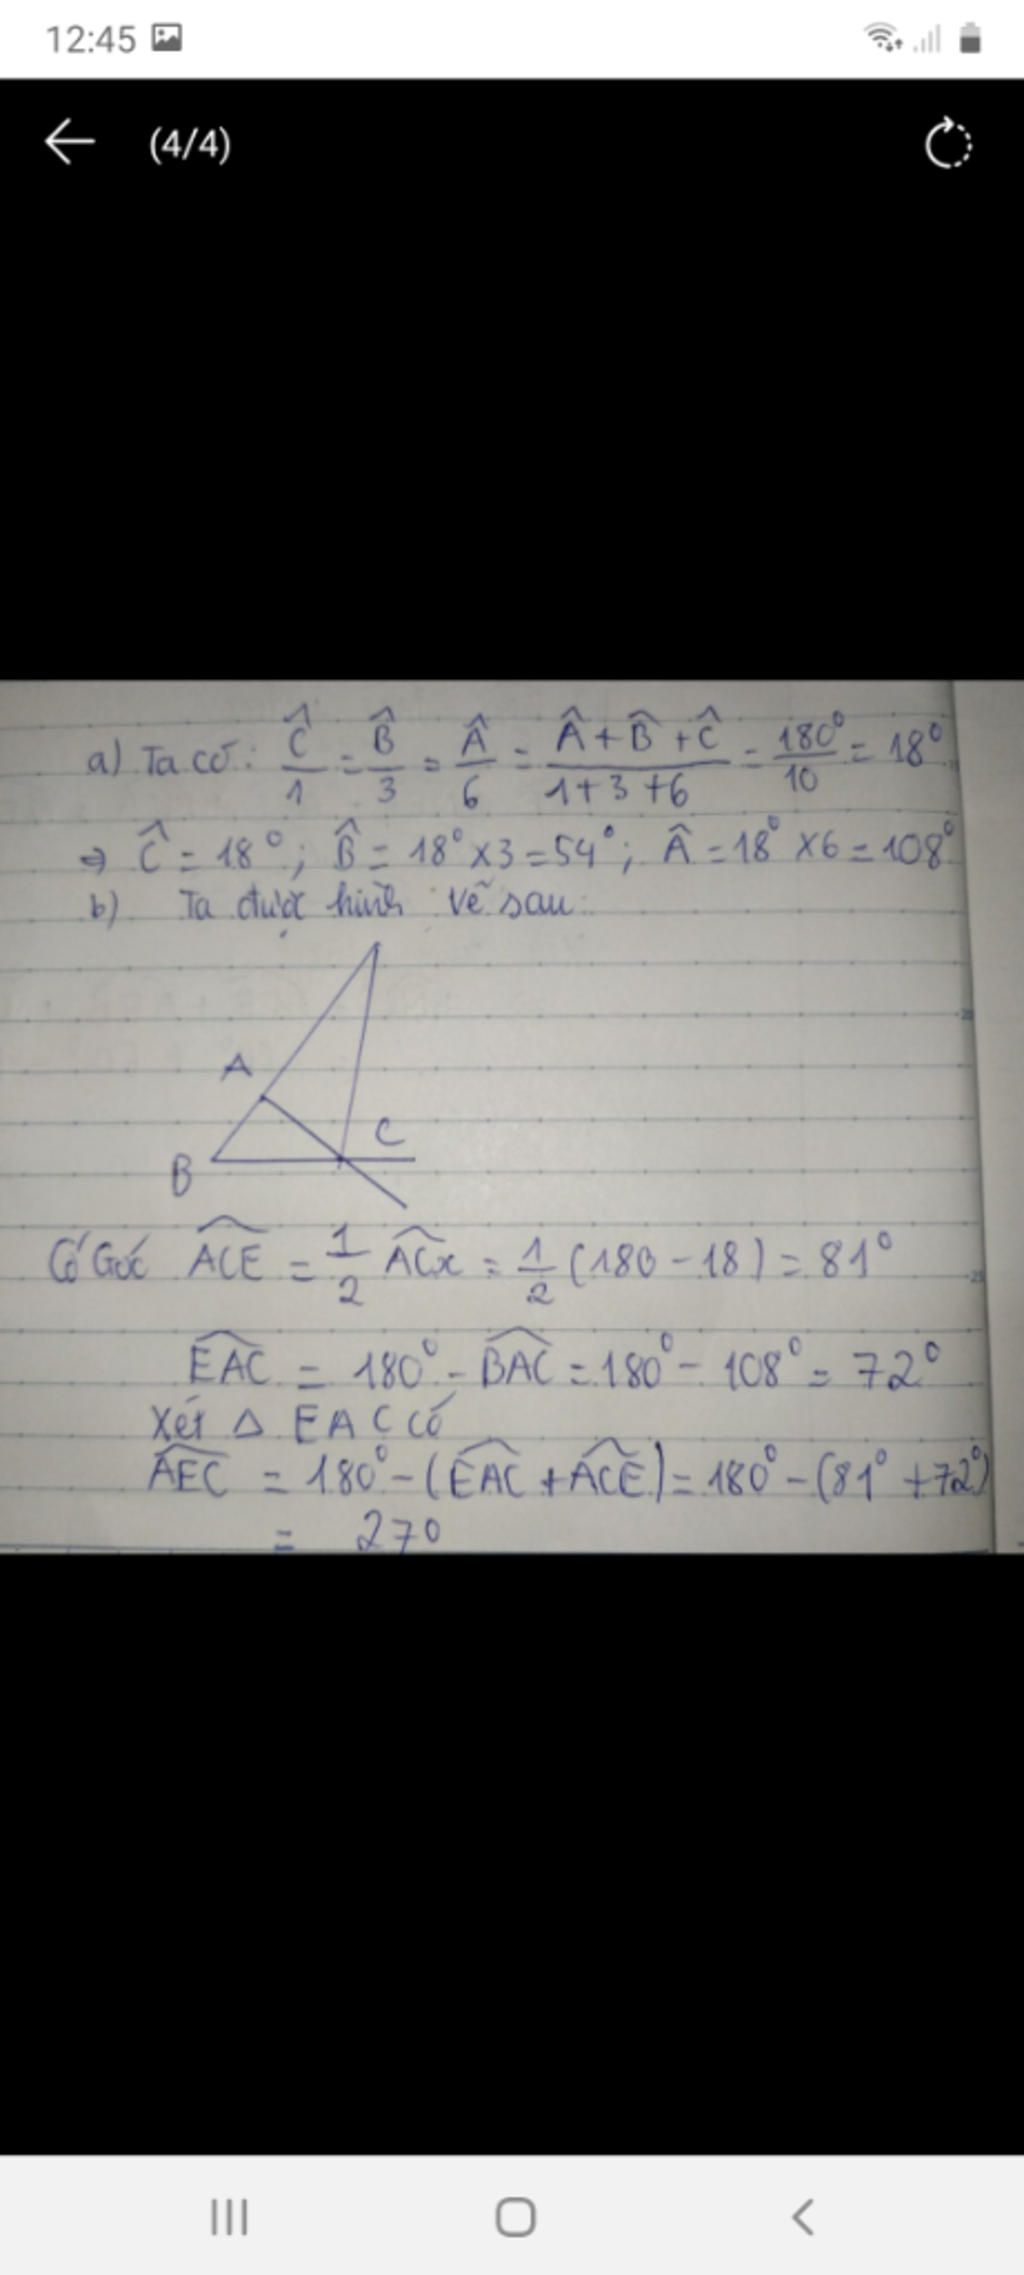 12:45
(4/4)
a) Ta có: Ĉ/1 = B̂/3 = Â/6 = (Â+B̂+Ĉ)/(1+3+6) = 180°/10 = 18°
⇒ Ĉ = 18°; B̂ = 18°×3 = 54°; Â = 18°×6 = 108°
b) Ta được hình vẽ sau:
A
C
B
Có Góc ACE = 1/2 ACx = 1/2 (180 - 18) = 81°
EAC = 180° - BAC = 180° - 108° = 72°
Xét Δ EAC có
AEC = 180° - (EAC + ACE) = 180° - (81° + 72°)
= 27°